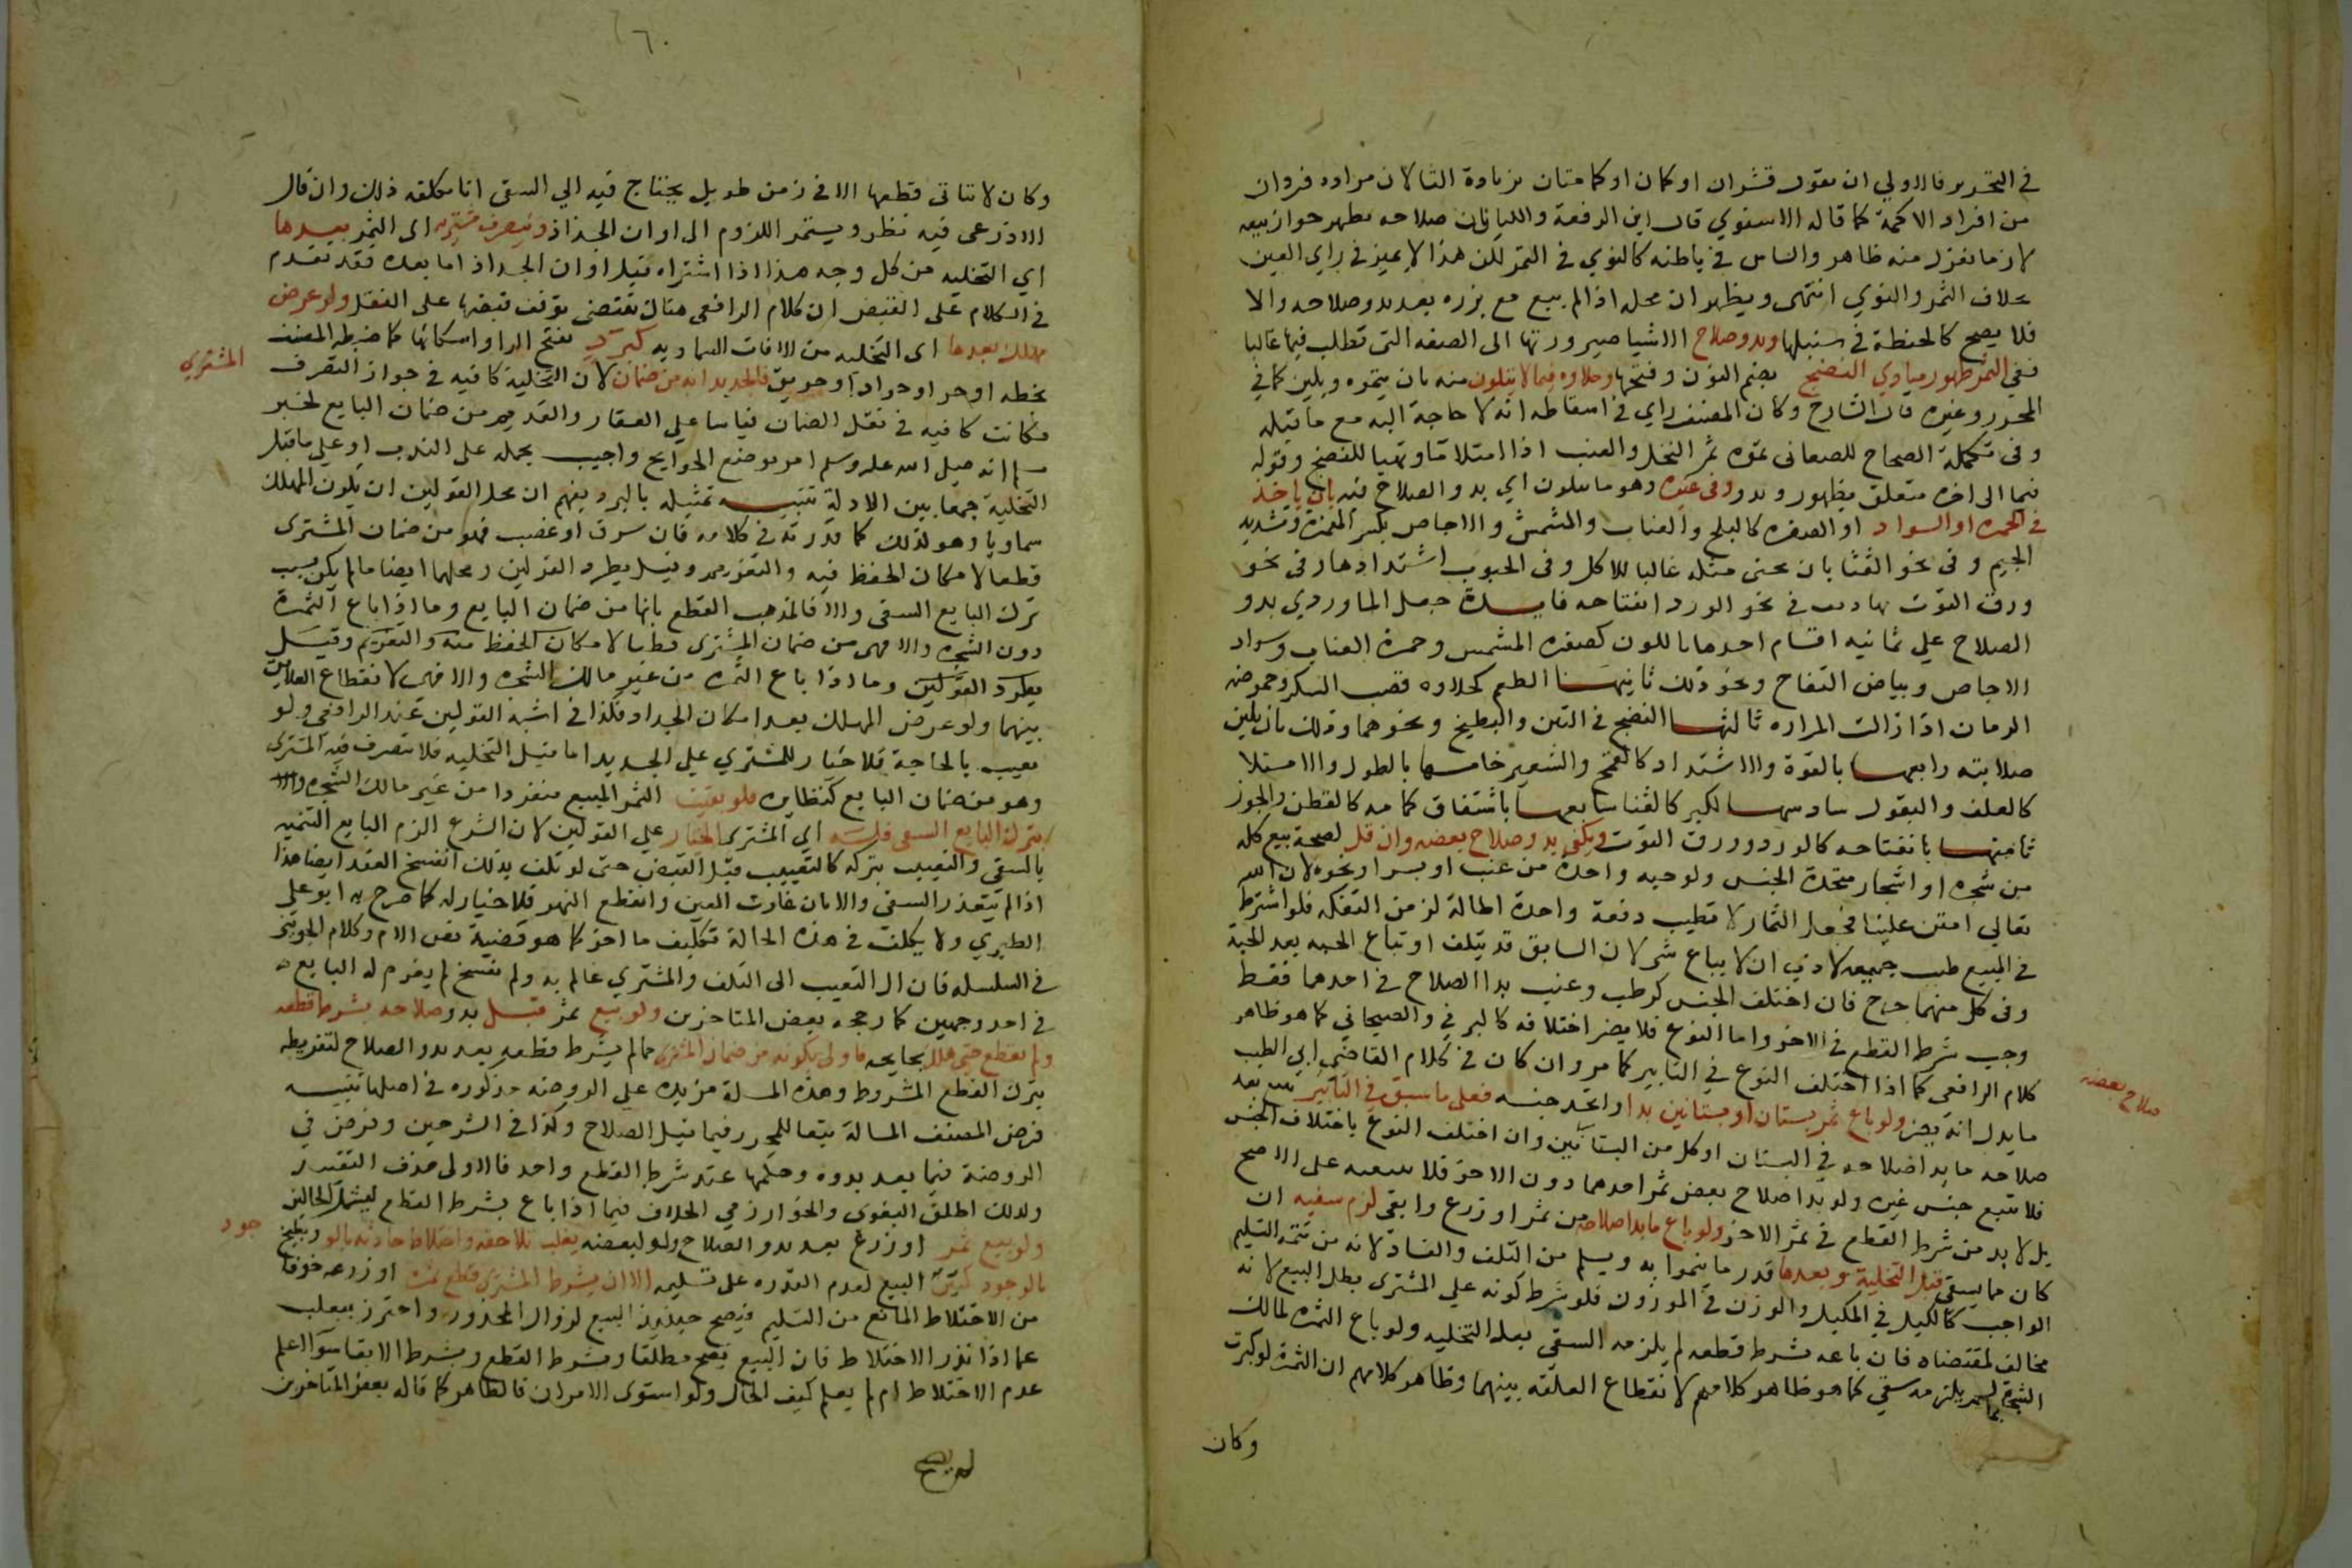 في التحرير فالاولي ان يقول قشران او كمان او كامتان بزيادة التا لان مراده فردان
من افراد الاكمة كما قاله الاسنوي قال ابن الرفعة والكتان صلاحه يظهر جواز بيعه
لان ما يغزل منه ظاهر والساس في باطنه كالنوي في التمر لكن هذا لا يميز في راي العين
بخلاف التمر والنوي انتهى ويظهر ان محله اذا لم يبع مع بزره بعد بدو صلاحه والا
فلا يصح كالحنطة في سنبلها وبدو صلاح الاشيا صيرورتها الى الصفه التى تطلب فيها غالبا
ففي الثمر ظهور مبادي النضج بضم النون وفتحها وحلاوه فيما لا يتلون منه بان يتموه ويلين كما في
المحرر وغيره قال الشارح وكان المصنف راي في اسقاطه انه لا حاجة اليه مع ما قبله
وفى تكملة الصحاح للصغانى تموه ثمر النخل والعنب اذا امتلا ماً وتهيا للنضج وقوله
فيما الى اخره متعلق بظهور وبدو وفى غيره وهو ما يتلون اي بدو الصلاح فيه بان ياخذ
في الحمره او السواد او الصفره كالبلح والعناب والمشمش والاجاص بكسر الهمزة وتشديد
الجيم وفى نحو القثا بان يجنى مثله غالبا للاكل وفى الحبوب اشتدادها وفى نحو
ورق التوت تناهيه في نحو الورد انفتاحه فايدة جعل الماوردي بدو
الصلاح علي ثمانيه اقسام احدها باللون كصفره المشمس وحمرة العناب وسواد
الاجاص وبياض التفاح ونحو ذلك ثانيها الطعم كحلاوه قصب السكر وحموضه
الرمان اذا زالت المراره ثالثها النضج في التين والبطيخ ونحوهما وذلك بان يلين
صلابته رابعها بالقوة والاشتداد كالقمح والشعير خامسها بالطول والامتلا
كالعلف والبقول سادسها بالكبر كالقثا سابعها باشتقاق كمامه كالقطن والجوز
ثامنها بانفتاحه كالورد وورق التوت ويكفى بدو صلاح بعضه وان قل لصحة بيع كله
من شجره او اشجار متحدة الجنس ولو حبه واحدة من عنب او بسر او نحوه لان الله
تعالي امتن علينا فجعل الثمار لا تطيب دفعة واحدة اطالة لزمن التفكه فلو اشترط
في المبيع طيب جميعه لادى ان لا يباع شى لان السابق قد يتلف او تباع الحبه بعد الحبة
وفى كل منهما حرج فان اختلف الجنس كرطب وعنب بدا الصلاح في احدهما فقط
وجب شرط القطع في الاخر واما النوع فلا يضر اختلافه كالبرني والصيحاني كما هو ظاهر
كلام الرافعى كما اذا اختلف النوع في التابير كما مر وان كان في كلام القاضى ابي الطيب
ما يدل انه يضر ولو باع ثمر بستان او بستانين بدا واتحد جنسه فعلى ما سبق في التابير
صلاح بعضه
صلاحه ما بدا صلاحه في البستان او كل من البستانين وان اختلف النوع باختلاف الجنس
فلا تتبع جنس غيره ولو بدا صلاح بعض ثمر احدهما دون الاخر فلا على الاصح
بل لا بد من شرط القطع في ثمر الاخر ولو باع ما بدا صلاحه من ثمر او زرع وابقى لزم سقيه ان
كان مما يسقى قبل التخلية وبعدها قدر ما ينموا به ويسلم من التلف والفساد لانه من تتمه التسليم
الواجب كالكيل في المكيل والوزن في الموزون فلو شرط كونه علي المشترى بطل البيع لانه
مخالف لمقتضاه فان باعه بشرط قطعه لم يلزمه السقى بعد التخليه ولو باع الثمره لمالك
الشجرة لم يلزمه سقي كما هو ظاهر كلامهم لانقطاع العلقه بينهما وظاهر كلامهم ان الثمرة لو كبرت
وكان
٦٠
وكان لا تتاتى قطعها الا في زمن طويل يحتاج فيه الي السقى انا نكلفه ذلك وان قال
الاذرعى فيه نظر ويستمر اللزوم الى اوان الجذاذ ويتصرف مشتريه اى الثمر بعدها
اي التخليه من كل وجه هذا اذا اشتراه قبل اوان الجداذ اما بعده فقد تقدم
في الكلام على القبض ان كلام الرافعى هناك يقتضى توقف قبضها على النقل ولو عرض
مهلك بعدها اى التخليه من الافات السماويه كبرد بفتح الرا واسكانها كما ضبطه المصنف
بخطه او حر او جراد او حريق فالجديد انه من ضمان لان التخلية كافيه في جواز التصرف
المشتري
فكانت كافيه في نقل الضمان قياسا على العقار والقديم من ضمان البايع لخبر
مسلم انه صلى الله عليه وسلم امر بوضع الجوايح واجيب بحمله على الندب او على ما قبل
التخلية جمعا بين الادلة تنبيه تمثيله بالبرد يفهم ان محل القولين ان يكون المهلك
سماويا وهو لذلك كما قدرته في كلامه فان سرق او غصب فهو من ضمان المشترى
قطعا لامكان الحفظ فيه والتغريم وقيل بطرد القولين ومحلهما ايضا ما لم يكن بسبب
ترك البايع السقى والا فالمذهب القطع بانها من ضمان البايع وما اذا باع الثمرة
دون الشجره والا فهى من ضمان المشترى قطعا لامكان الحفظ منه والتغريم وقيل
بطرد القولين وما اذا باع الثمره من غير مالك الشجره والا فهى لانقطاع العلايق
بينهما ولو عرض المهلك بعد امكان الجداد فكذا في اشبه القولين عند الرافعي ولو
تعيب بالحاجة فلا خيار للمشتري علي الجديد اما قبل التخليه فلا تتصرف فيه المشترى
وهو من ضمان البايع كنظايره فلو بقيت الثمر المبيع منفردا من غير مالك الشجره والا
بترك البايع السقى فله اي المشترى الخيار علي القولين لان الشرع الزم البايع التنميه
بالسقى والتعييب بتركه كالتعييب قبل القبض حتى لو تلف بذلك انفسخ العقد ايضا هذا
اذا لم يتعذر السقى والا بان غارت العين وانقطع النهر فلا خيار له كما صرح به ابو علي
الطبري ولا يكلف في هذه الحالة تكليف ما اخر كما هو قضية نص الام وكلام الجويني
في السلسله فان ال التعيب الى التلف والمشتري عالم به ولم يفسخ لم يغرم له البايع
في احد وجهين كما رجحه بعض المتاخرين ولو بيع ثمر قبل بدو صلاحه بشرط قطعه
ولم يقطع حتى هلك بجايحه فاولى بكونه من ضمان المشترى مما لم يشرط قطعه بعد بدو الصلاح لتفريطه
بترك القطع المشروط وهذه المسلة مزيده علي الروضه مذكوره في اصلها تنبيه
فرض المصنف المسالة تبعا للمحرر فيما قبل الصلاح وكذا في الشرحين وفرض في
الروضة فيما بعد بدوه وحكمها عند شرط القطع واحد فالاولى حذف التقييد
ولذلك اطلق البغوى والخوارزمي الخلاف فيما اذا باع بشرط القطع ليشمل الحالين
ولو بيع ثمر او زرع بعد بدو الصلاح ولو لبعضه يغلب تلاحقه واختلاط حادثه بالو وبطيخ
جود
بالوجود كتين البيع لعدم القدره على تسليمه الا ان يشرط المشترى قطع ثمره او زرعه خوفا
من الاختلاط المانع من التسليم فيصح حينئذ البيع لزوال المحذور واحترز بيغلب
عما اذا ندر الاختلاط فان البيع يصح مطلقا وبشرط القطع وبشرط الابقا سوا اعلم
عدم الاختلاط ام لم يعلم كيف الحال ولو استوى الامران فالظاهر كما قاله بعض المتاخرين